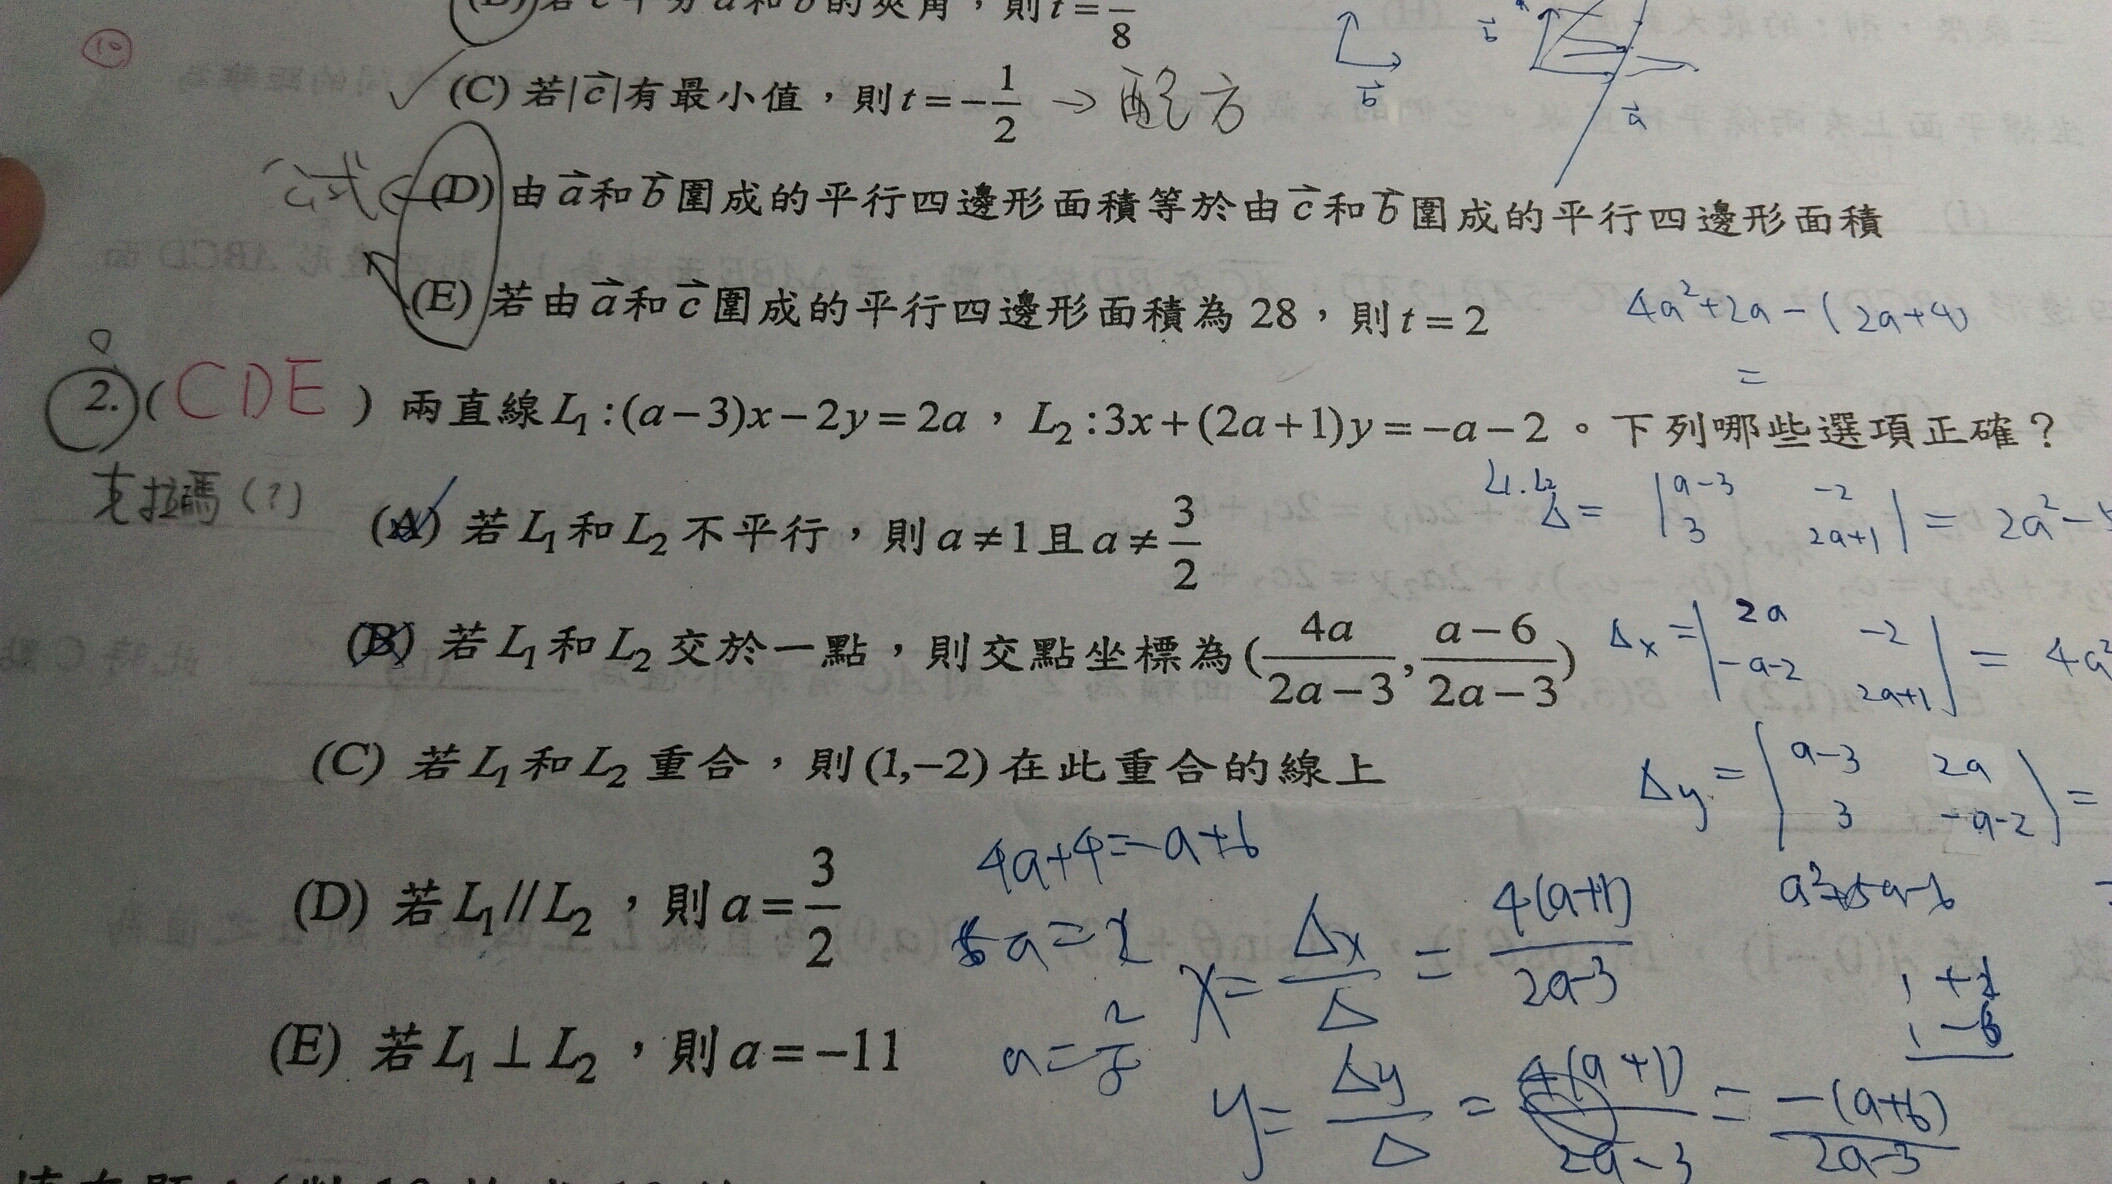 (B) 若 c 平分 a 和 b 的夾角，則 t = /8
⑩
(C) 若|c⃗|有最小值，則 t = -1/2 → 配方
公式
(D) 由 a⃗ 和 b⃗ 圍成的平行四邊形面積等於由 c⃗ 和 b⃗ 圍成的平行四邊形面積
(E) 若由 a⃗ 和 c⃗ 圍成的平行四邊形面積為 28，則 t = 2
4a²+2a-(2a+4)
=
2. (CDE) 兩直線 L₁:(a-3)x-2y=2a，L₂:3x+(2a+1)y=-a-2。下列哪些選項正確？
克拉瑪(?)
(A) 若 L₁ 和 L₂ 不平行，則 a≠1 且 a≠3/2
L₁.L₂
Δ = |a-3 -2
3 2a+1| = 2a²-5
(B) 若 L₁ 和 L₂ 交於一點，則交點坐標為 (4a/(2a-3), (a-6)/(2a-3))
Δx = |2a -2
-a-2 2a+1| = 4a²
(C) 若 L₁ 和 L₂ 重合，則 (1,-2) 在此重合的線上
Δy = |a-3 2a
3 -a-2| =
(D) 若 L₁//L₂，則 a=3/2
4a+4=-a+6
5a=2
a=2/5
x = Δx/Δ = 4(a+1)/(2a-3)
(E) 若 L₁⊥L₂，則 a=-11
y = Δy/Δ = 4(a+1)/(2a-3) = -(a+6)/(2a-3)